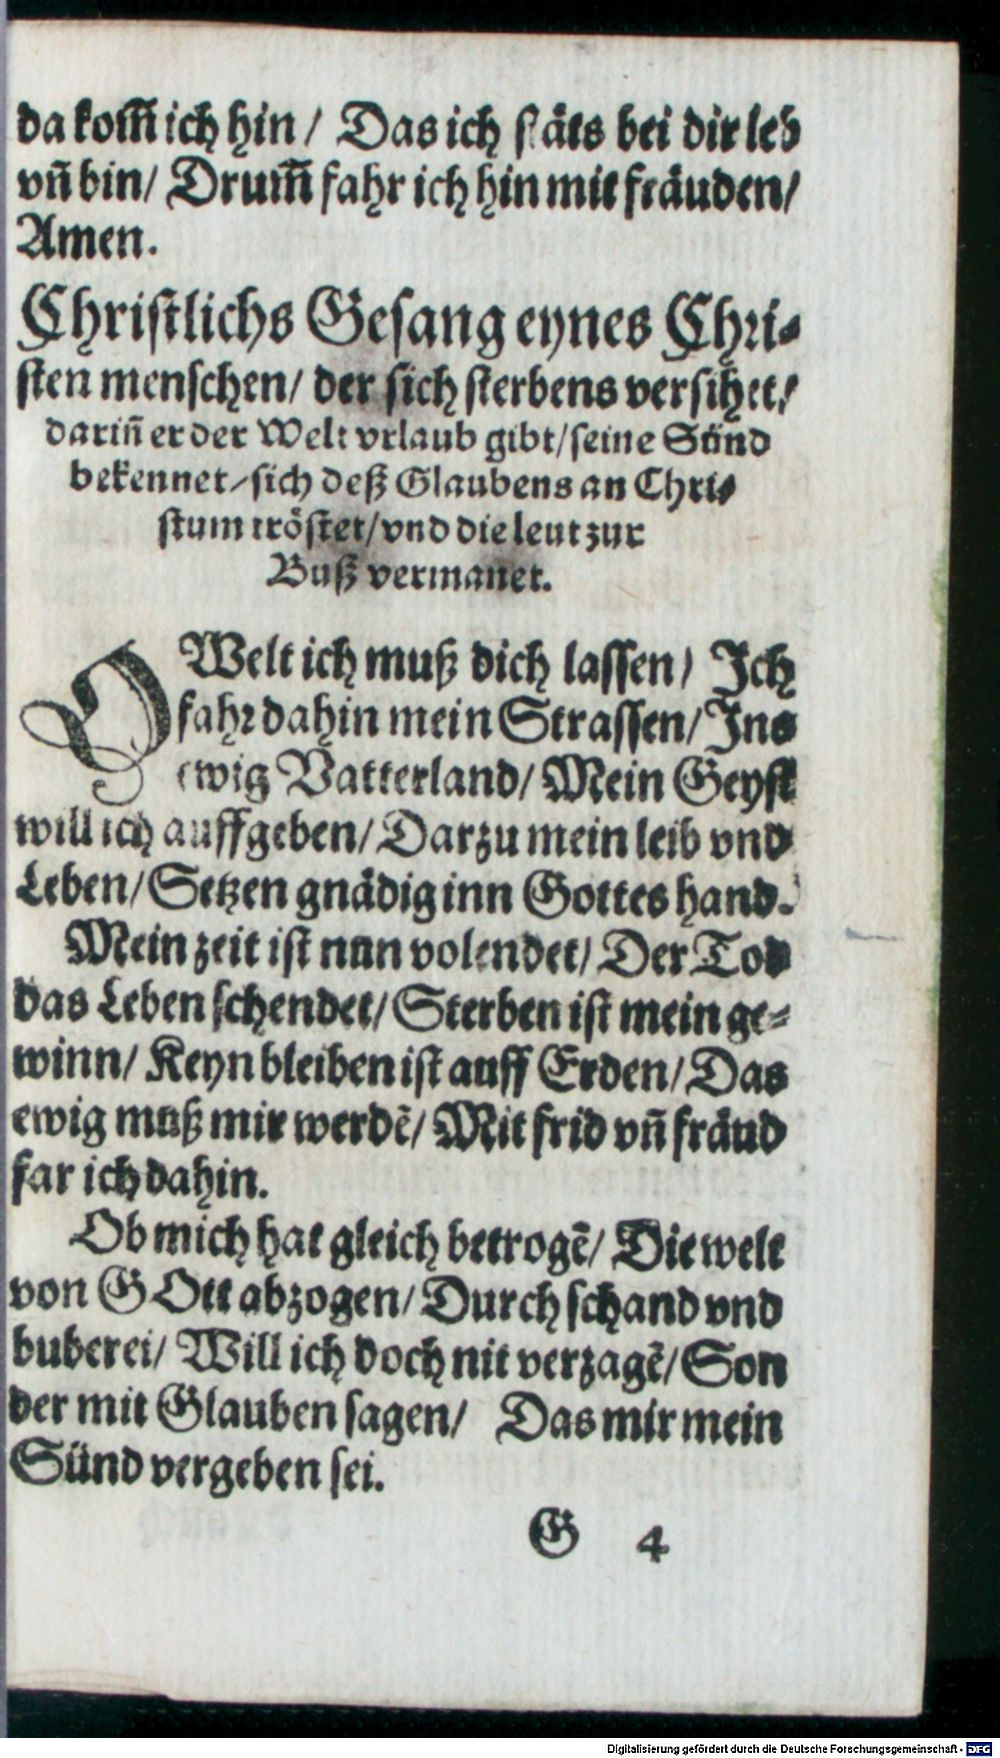 da kom̃ ich hin / Das ich stäts bei dir leb
vñ bin / Drum̃ fahr ich hin mit fräuden /
Amen.
Christlichs Gesang eynes Chri-
sten menschen / der sich sterbens versihet /
dariñ er der Welt vrlaub gibt / seine Sünd
bekennet / sich deß Glaubens an Chri-
stum tröstet / vnd die leut zur
Buß vermanet.
O Welt ich muß dich lassen / Ich
fahr dahin mein Strassen / Ins
ewig Vatterland / Mein Geyst
will ich auffgeben / Darzu mein leib vnd
Leben / Setzen gnädig inn Gottes hand.
Mein zeit ist nun volendet / Der Tod
das Leben schendet / Sterben ist mein ge-
winn / Keyn bleiben ist auff Erden / Das
ewig muß mir werdẽ / Mit frid vñ fräud
far ich dahin.
Ob mich hat gleich betrogẽ / Die welt
von GOtt abzogen / Durch schand vnd
buberei / Will ich doch nit verzagẽ / Son
der mit Glauben sagen / Das mir mein
Sünd vergeben sei.
G 4
Digitalisierung gefördert durch die Deutsche Forschungsgemeinschaft - DFG